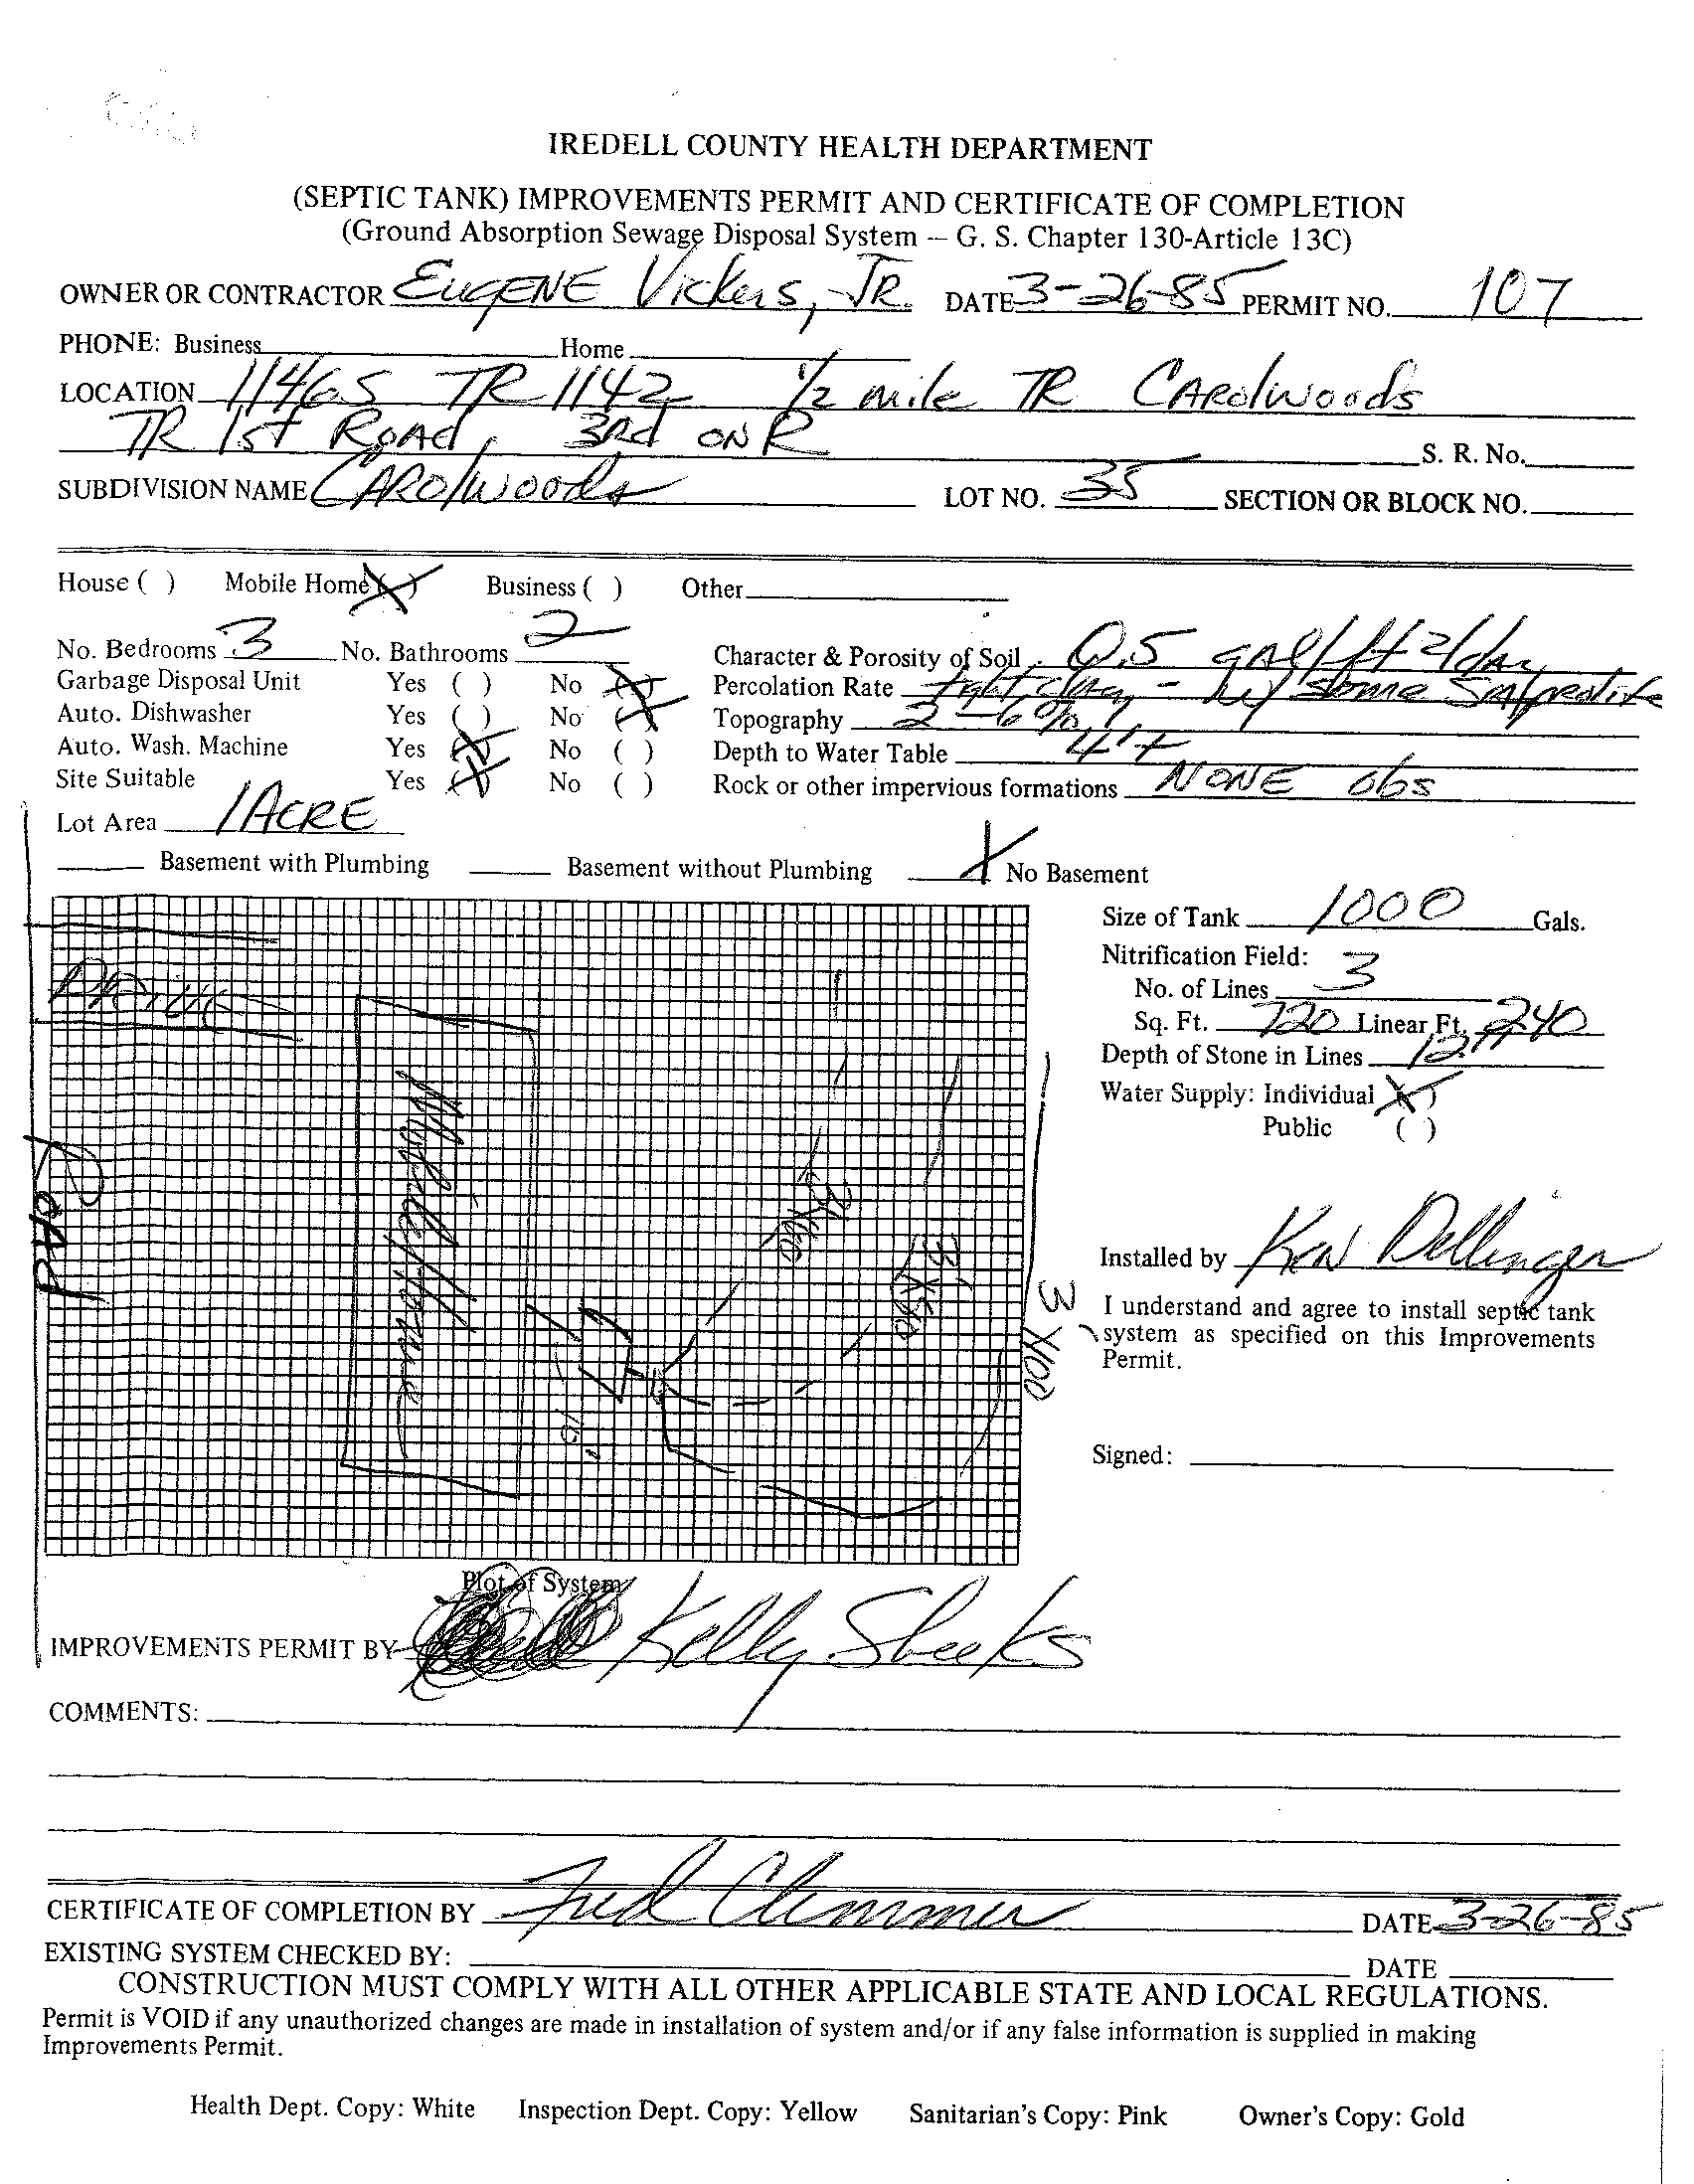 IREDELL COUNTY HEALTH DEPARTMENT
(SEPTIC TANK) IMPROVEMENTS PERMIT AND CERTIFICATE OF COMPLETION
(Ground Absorption Sewage Disposal System – G. S. Chapter 130-Article 13C)
OWNER OR CONTRACTOR EUGENE Vickers, JR. DATE 3-26-85 PERMIT NO. 107
PHONE: Business Home
LOCATION 1146S TR 1142 1/2 mile TR CAROlwoods
TR 1st ROAd, 3Rd ON R S. R. No.
SUBDIVISION NAME CAROlwoods LOT NO. 35 SECTION OR BLOCK NO.
House ( ) Mobile Home (X) Business ( ) Other
No. Bedrooms 3 No. Bathrooms 2 Character & Porosity of Soil 0.5 gAl/ft2/day
Garbage Disposal Unit Yes ( ) No (X) Percolation Rate clay - w/ some
Auto. Dishwasher Yes ( ) No (X) Topography 2-6%
Auto. Wash. Machine Yes (X) No ( ) Depth to Water Table 4'+
Site Suitable Yes (X) No ( ) Rock or other impervious formations NONE obs
Lot Area 1 ACRE
Basement with Plumbing Basement without Plumbing X No Basement
Size of Tank 1000 Gals.
Nitrification Field:
No. of Lines 3
Sq. Ft. 720 Linear Ft. 240
Depth of Stone in Lines 12"
Water Supply: Individual (X)
Public ( )
DRIVE
ROAD
Mobile Home
3X60
3'X80
3 X100
Installed by Ken Dellinger
I understand and agree to install septic tank
system as specified on this Improvements
Permit.
Signed:
Plot of System
IMPROVEMENTS PERMIT BY Kelly Sheeks
COMMENTS:
CERTIFICATE OF COMPLETION BY Fred Clemmer DATE 3-26-85
EXISTING SYSTEM CHECKED BY: DATE
CONSTRUCTION MUST COMPLY WITH ALL OTHER APPLICABLE STATE AND LOCAL REGULATIONS.
Permit is VOID if any unauthorized changes are made in installation of system and/or if any false information is supplied in making
Improvements Permit.
Health Dept. Copy: White Inspection Dept. Copy: Yellow Sanitarian's Copy: Pink Owner's Copy: Gold